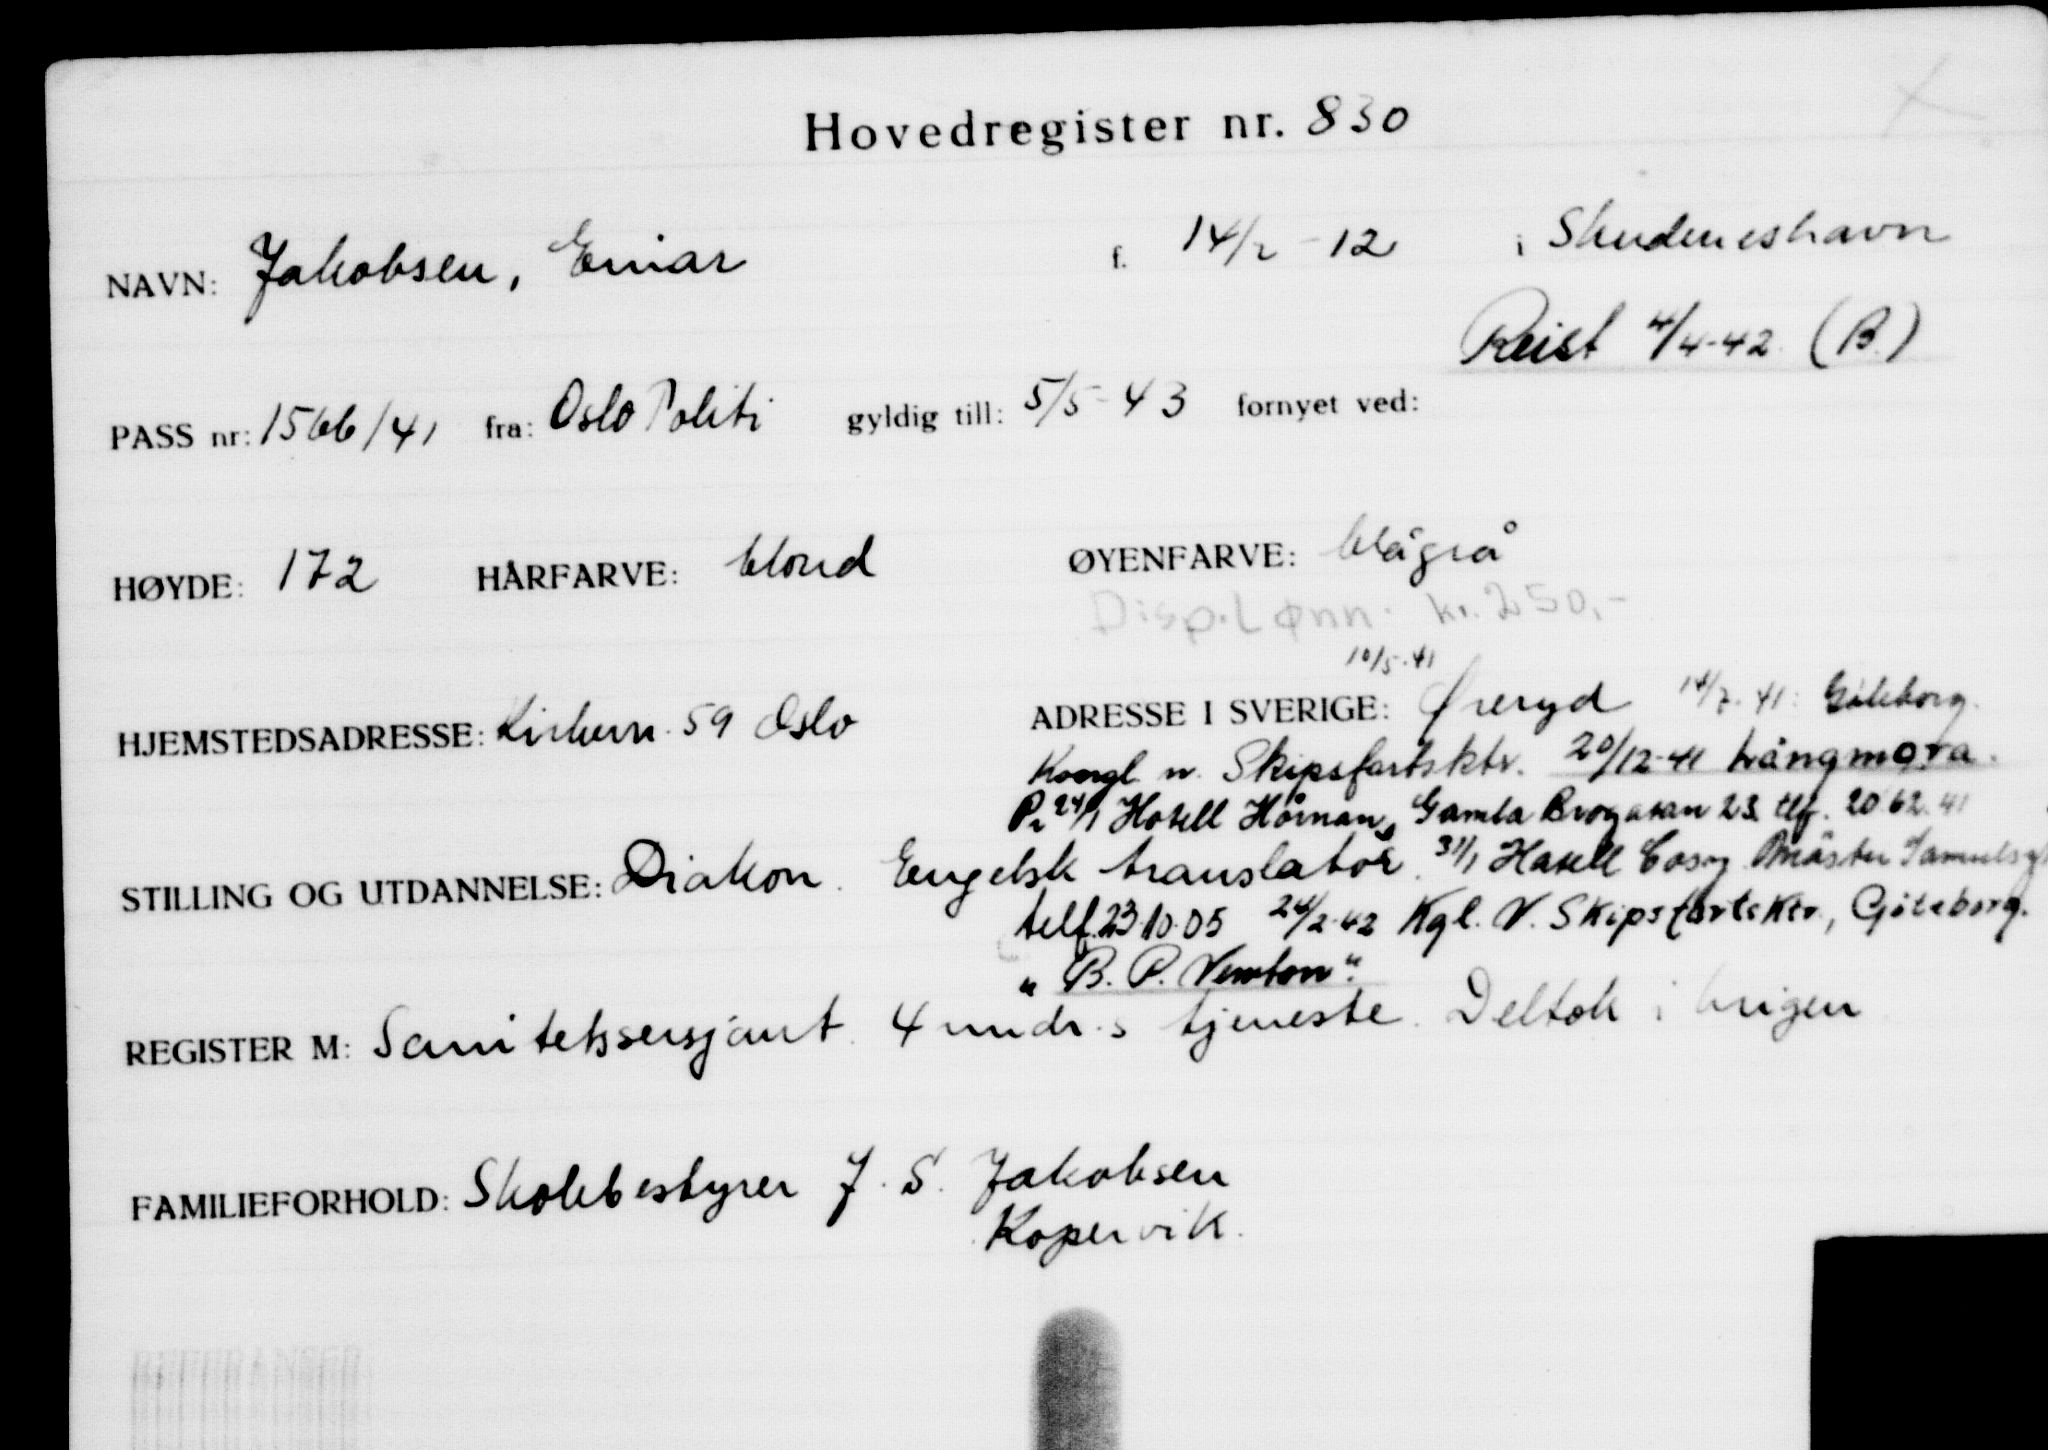 Hovedregister nr. 830
NAVN: Jakobsen, Einar f. 14/2 - 12 i Skudeneshavn
Reist 4/4-42 (B.)
PASS nr: 1566/41 fra: Oslo Politi gyldig till: 5/5-43 fornyet ved:
HØYDE: 172 HÅRFARVE: blond ØYENFARVE: blågrå
Disp. Lønn. kr. 250,-
10/5-41
HJEMSTEDSADRESSE: Kirkevn. 59 Oslo ADRESSE I SVERIGE: Øreryd 14/7-41: Göteborg.
Kongl n. Skipsfartsktr. 20/12-41 Långmora.
24/1 Hotell Hörnan, Gamla Brogatan 23 tlf. 20 62 41
STILLING OG UTDANNELSE: Diakon. Engelsk translatør. 31/1 Hotell Cosy Mäster Samuelsg
telf. 23.10.05 24/2-42 Kgl. N. Skipsfartsktr., Göteborg.
"B. P. Newton".
REGISTER M: Sanitetssersjant. 4 mndr.s tjeneste. Deltok i krigen
FAMILIEFORHOLD: Skolebestyrer J. S. Jakobsen
Kopervik.